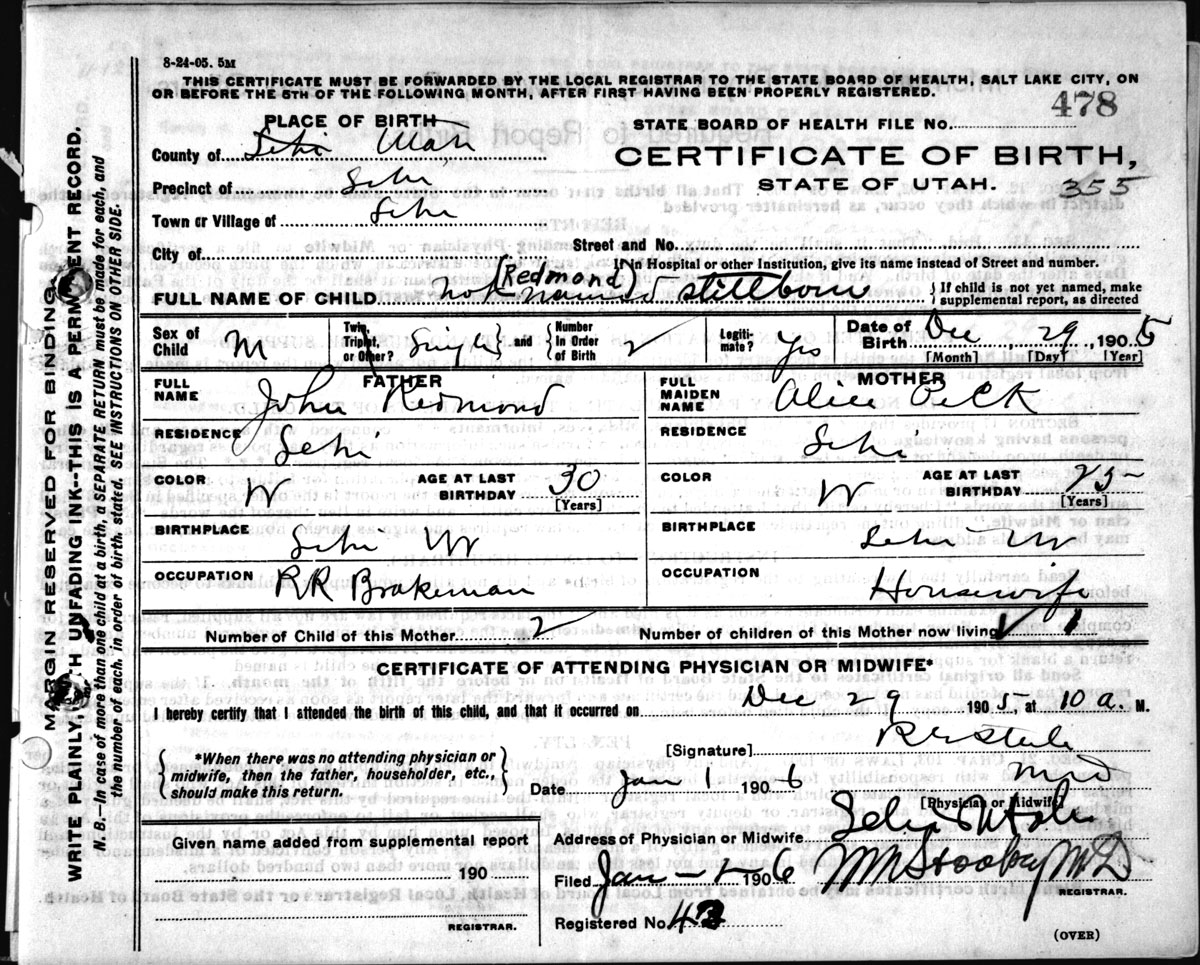 8-24-05. 5M
THIS CERTIFICATE MUST BE FORWARDED BY THE LOCAL REGISTRAR TO THE STATE BOARD OF HEALTH, SALT LAKE CITY, ON
OR BEFORE THE 5TH OF THE FOLLOWING MONTH, AFTER FIRST HAVING BEEN PROPERLY REGISTERED.
PLACE OF BIRTH
STATE BOARD OF HEALTH FILE No. 478
County of Lehi Utah
CERTIFICATE OF BIRTH,
STATE OF UTAH. 355
Precinct of Lehi
Town or Village of Lehi
Street and No.
City of
If in Hospital or other Institution, give its name instead of Street and number.
(Redmond)
FULL NAME OF CHILD not named - stillborn { If child is not yet named, make supplemental report, as directed
Sex of Child M Twin, Triplet, or Other? Single and Number In Order of Birth 2 Legitimate? Yes Date of Birth Dec 29, 1905
[Month] [Day] [Year]
FATHER
FULL NAME John Redmond
RESIDENCE Lehi
COLOR W AGE AT LAST BIRTHDAY 30
[Years]
BIRTHPLACE Lehi
OCCUPATION RR Brakeman
MOTHER
FULL MAIDEN NAME Alice Peck
RESIDENCE Lehi
COLOR W AGE AT LAST BIRTHDAY 25
[Years]
BIRTHPLACE Lehi
OCCUPATION Housewife
Number of Child of this Mother 2 Number of children of this Mother now living 1
CERTIFICATE OF ATTENDING PHYSICIAN OR MIDWIFE*
I hereby certify that I attended the birth of this child, and that it occurred on Dec 29 1905, at 10 a. M.
{ *When there was no attending physician or midwife, then the father, householder, etc., should make this return. }
[Signature]
Date Jan 1 1906 MD
[Physician or Midwife]
Given name added from supplemental report
190
REGISTRAR.
Address of Physician or Midwife Lehi Utah
Filed Jan - 1 - 1906 MD
REGISTRAR.
Registered No. 43
(OVER)
MARGIN RESERVED FOR BINDING.
WRITE PLAINLY, WITH UNFADING INK--THIS IS A PERMANENT RECORD.
N.B.—In case of more than one child at a birth, a SEPARATE RETURN must be made for each, and
the number of each, in order of birth, stated. SEE INSTRUCTIONS ON OTHER SIDE.